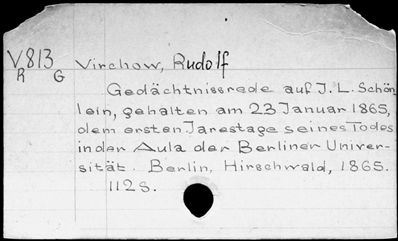 V813 Virchow, Rudolf
R G
Gedächtnissrede auf J. L. Schön
lein, gehalten am 23 Januar 1865,
dem ersten Jarestage seines Todes
in der Aula der Berliner Univer-
sität. Berlin, Hirschwald, 1865.
112 S.